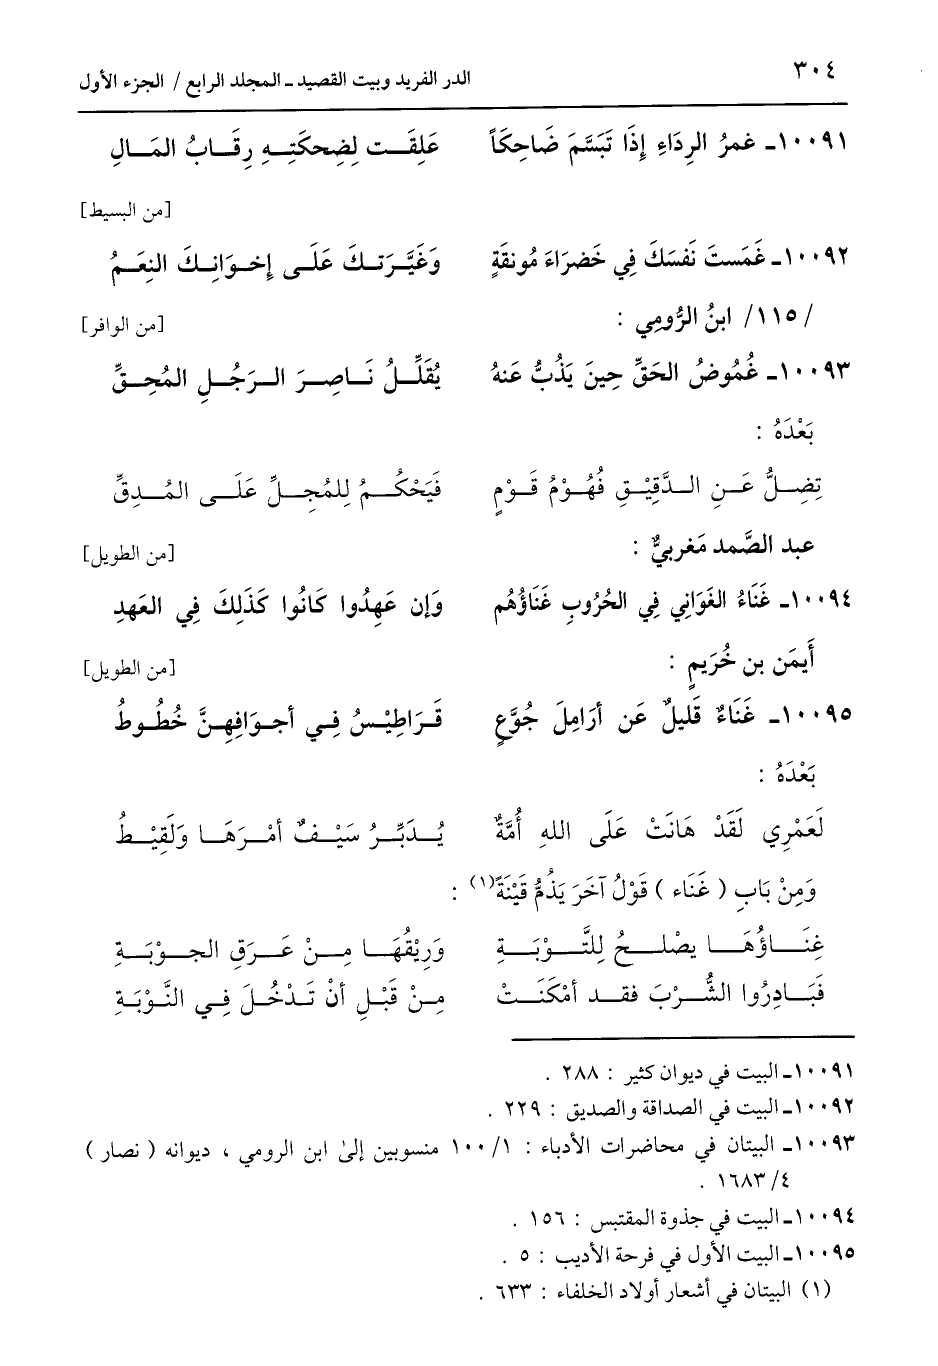 ٣٠٤ الدر الفريد وبيت القصيد ـ المجلد الرابع / الجزء الأول
١٠٠٩١ـ غمرُ الرِدَاءِ إِذَا تَبَسَّمَ ضَاحِكَاً عَلِقَـــت لِضِحكَتِــهِ رِقَــابُ المَــالِ
[من البسيط]
١٠٠٩٢ـ غَمَستَ نَفسَكَ فِي خَضرَاءَ مُونقَةٍ وَغَيَّـرَتـكَ عَلَـى إخـوَانِـكَ النِعَـمُ
/١١٥/ ابنُ الرُّومِي : [من الوافر]
١٠٠٩٣ـ غُمُوضُ الحَقِّ حِينَ يَذُبُّ عَنهُ يُقَلِّـلُ نَـاصِـرَ الـرَجُـلِ المُحِـقِّ
بَعْدَهُ :
تضِـلُّ عَـنِ الـدَّقِيْـقِ فُهُـوْمُ قَـوْمٍ فَيَحْكُـمُ لِلمُجِـلِّ عَلَـى المُـدِقِّ
عبد الصَّمد مَغربيٌّ : [من الطويل]
١٠٠٩٤ـ غَنَاءُ الغَوَانِي فِي الحُرُوبِ غَنَاؤُهُم وَإن عَهِدُوا كَانُوا كَذَلِكَ فِي العَهدِ
أَيمَن بن خُرَيمٍ : [من الطويل]
١٠٠٩٥ـ غَنَاءٌ قَليلٌ عَن أرَامِلَ جُوَّعٍ قَـرَاطِيْـسُ فِـي أجـوَافِهِـنَّ خُطُـوطُ
بَعْدَهُ :
لَعَمْرِي لَقَدْ هَانَتْ عَلَى اللهِ أُمَّةٌ يُـدَبِّـرُ سَيْـفٌ أمْـرَهَـا وَلَقِيْـطُ
وَمِنْ بَابِ ( غَنَاء ) قَوْلُ آخَرَ يَذُمُّ قَيْنَةً(١) :
غِنَـاؤُهَـا يصْلـحُ لِلتَّـوْبَـةِ وَرِيْقُهَـا مِـنْ عَـرَقِ الجـوْبَـةِ
فَبَـادِرُوا الشُّرْبَ فقـد أمْكَنَـتْ مِـنْ قَبْـلِ أنْ تَـدْخُـلَ فِـي النَّـوْبَـةِ
١٠٠٩١ـ البيت في ديوان كثير : ٢٨٨ .
١٠٠٩٢ـ البيت في الصداقة والصديق : ٢٢٩ .
١٠٠٩٣ـ البيتان في محاضرات الأدباء : ١/ ١٠٠ منسوبين إلىٰ ابن الرومي ، ديوانه ( نصار )
٤/ ١٦٨٣ .
١٠٠٩٤ـ البيت في جذوة المقتبس : ١٥٦ .
١٠٠٩٥ـ البيت الأول في فرحة الأديب : ٥ .
(١) البيتان في أشعار أولاد الخلفاء : ٦٣٣ .